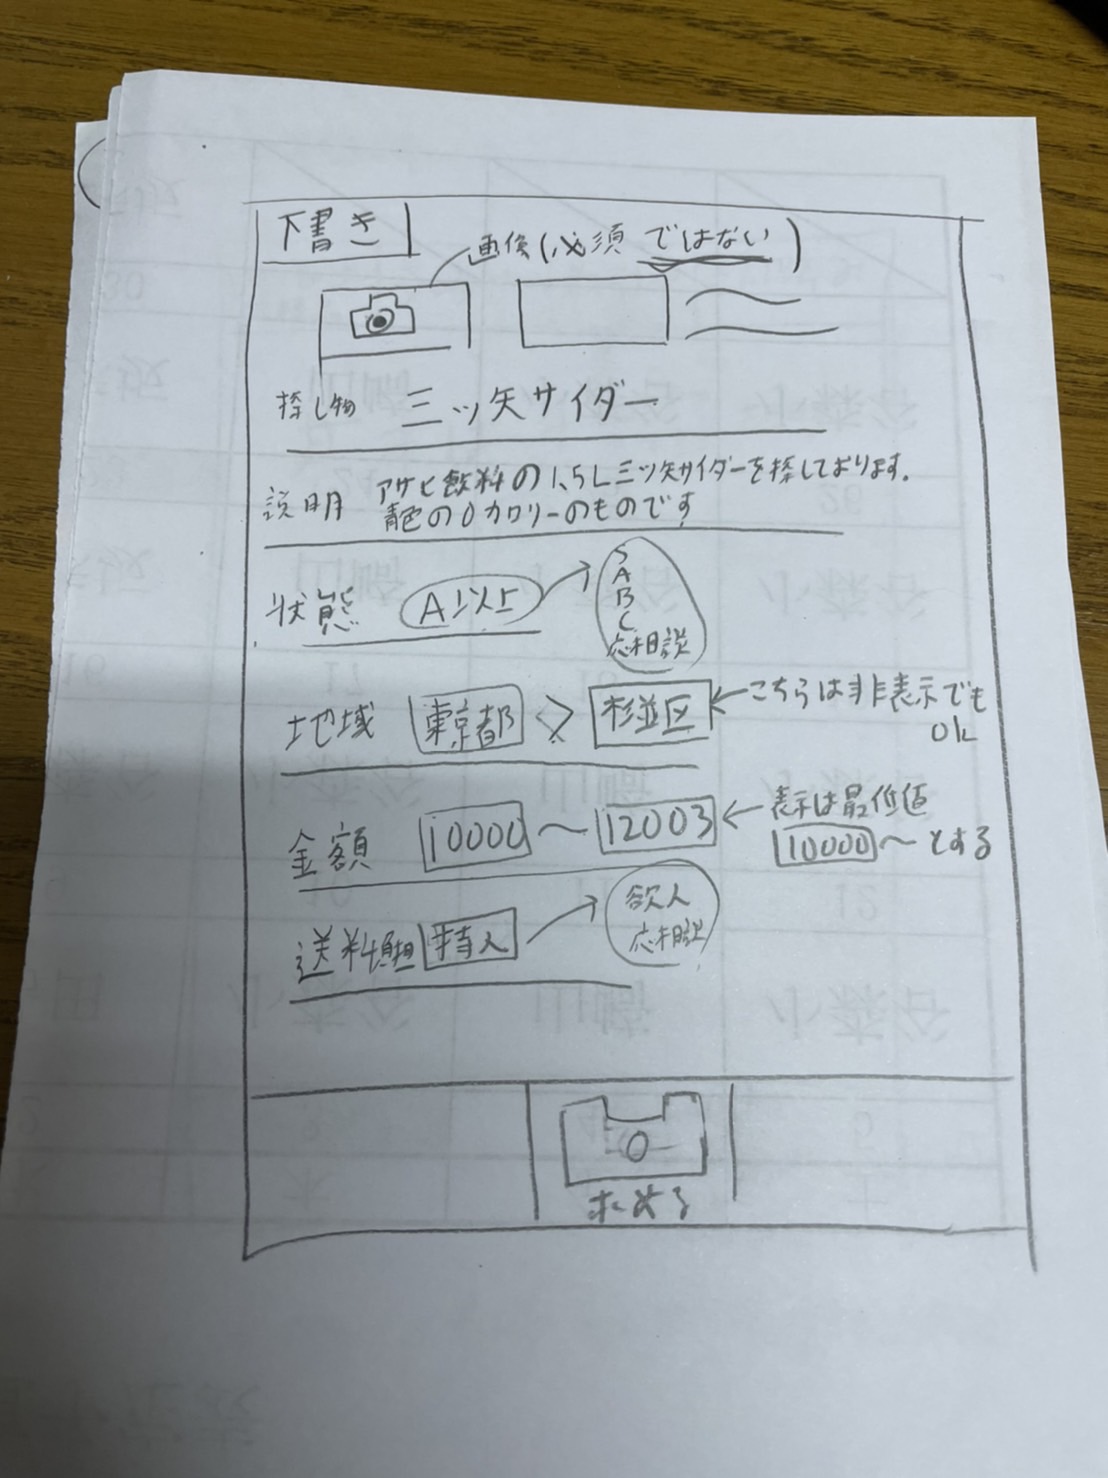 下書き
画像(必須ではない)
探し物 三ツ矢サイダー
説明 アサヒ飲料の1,5L三ツ矢サイダーを探しております。
青色の0カロリーのものです
状態 A以上
S
A
B
C
応相談
地域 東京都 > 杉並区 ←こちらは非表示でも
OK
金額 10000 〜 12003 ← 表示は最低値
10000〜とする
送料負担 持人
欲人
応相談
求める